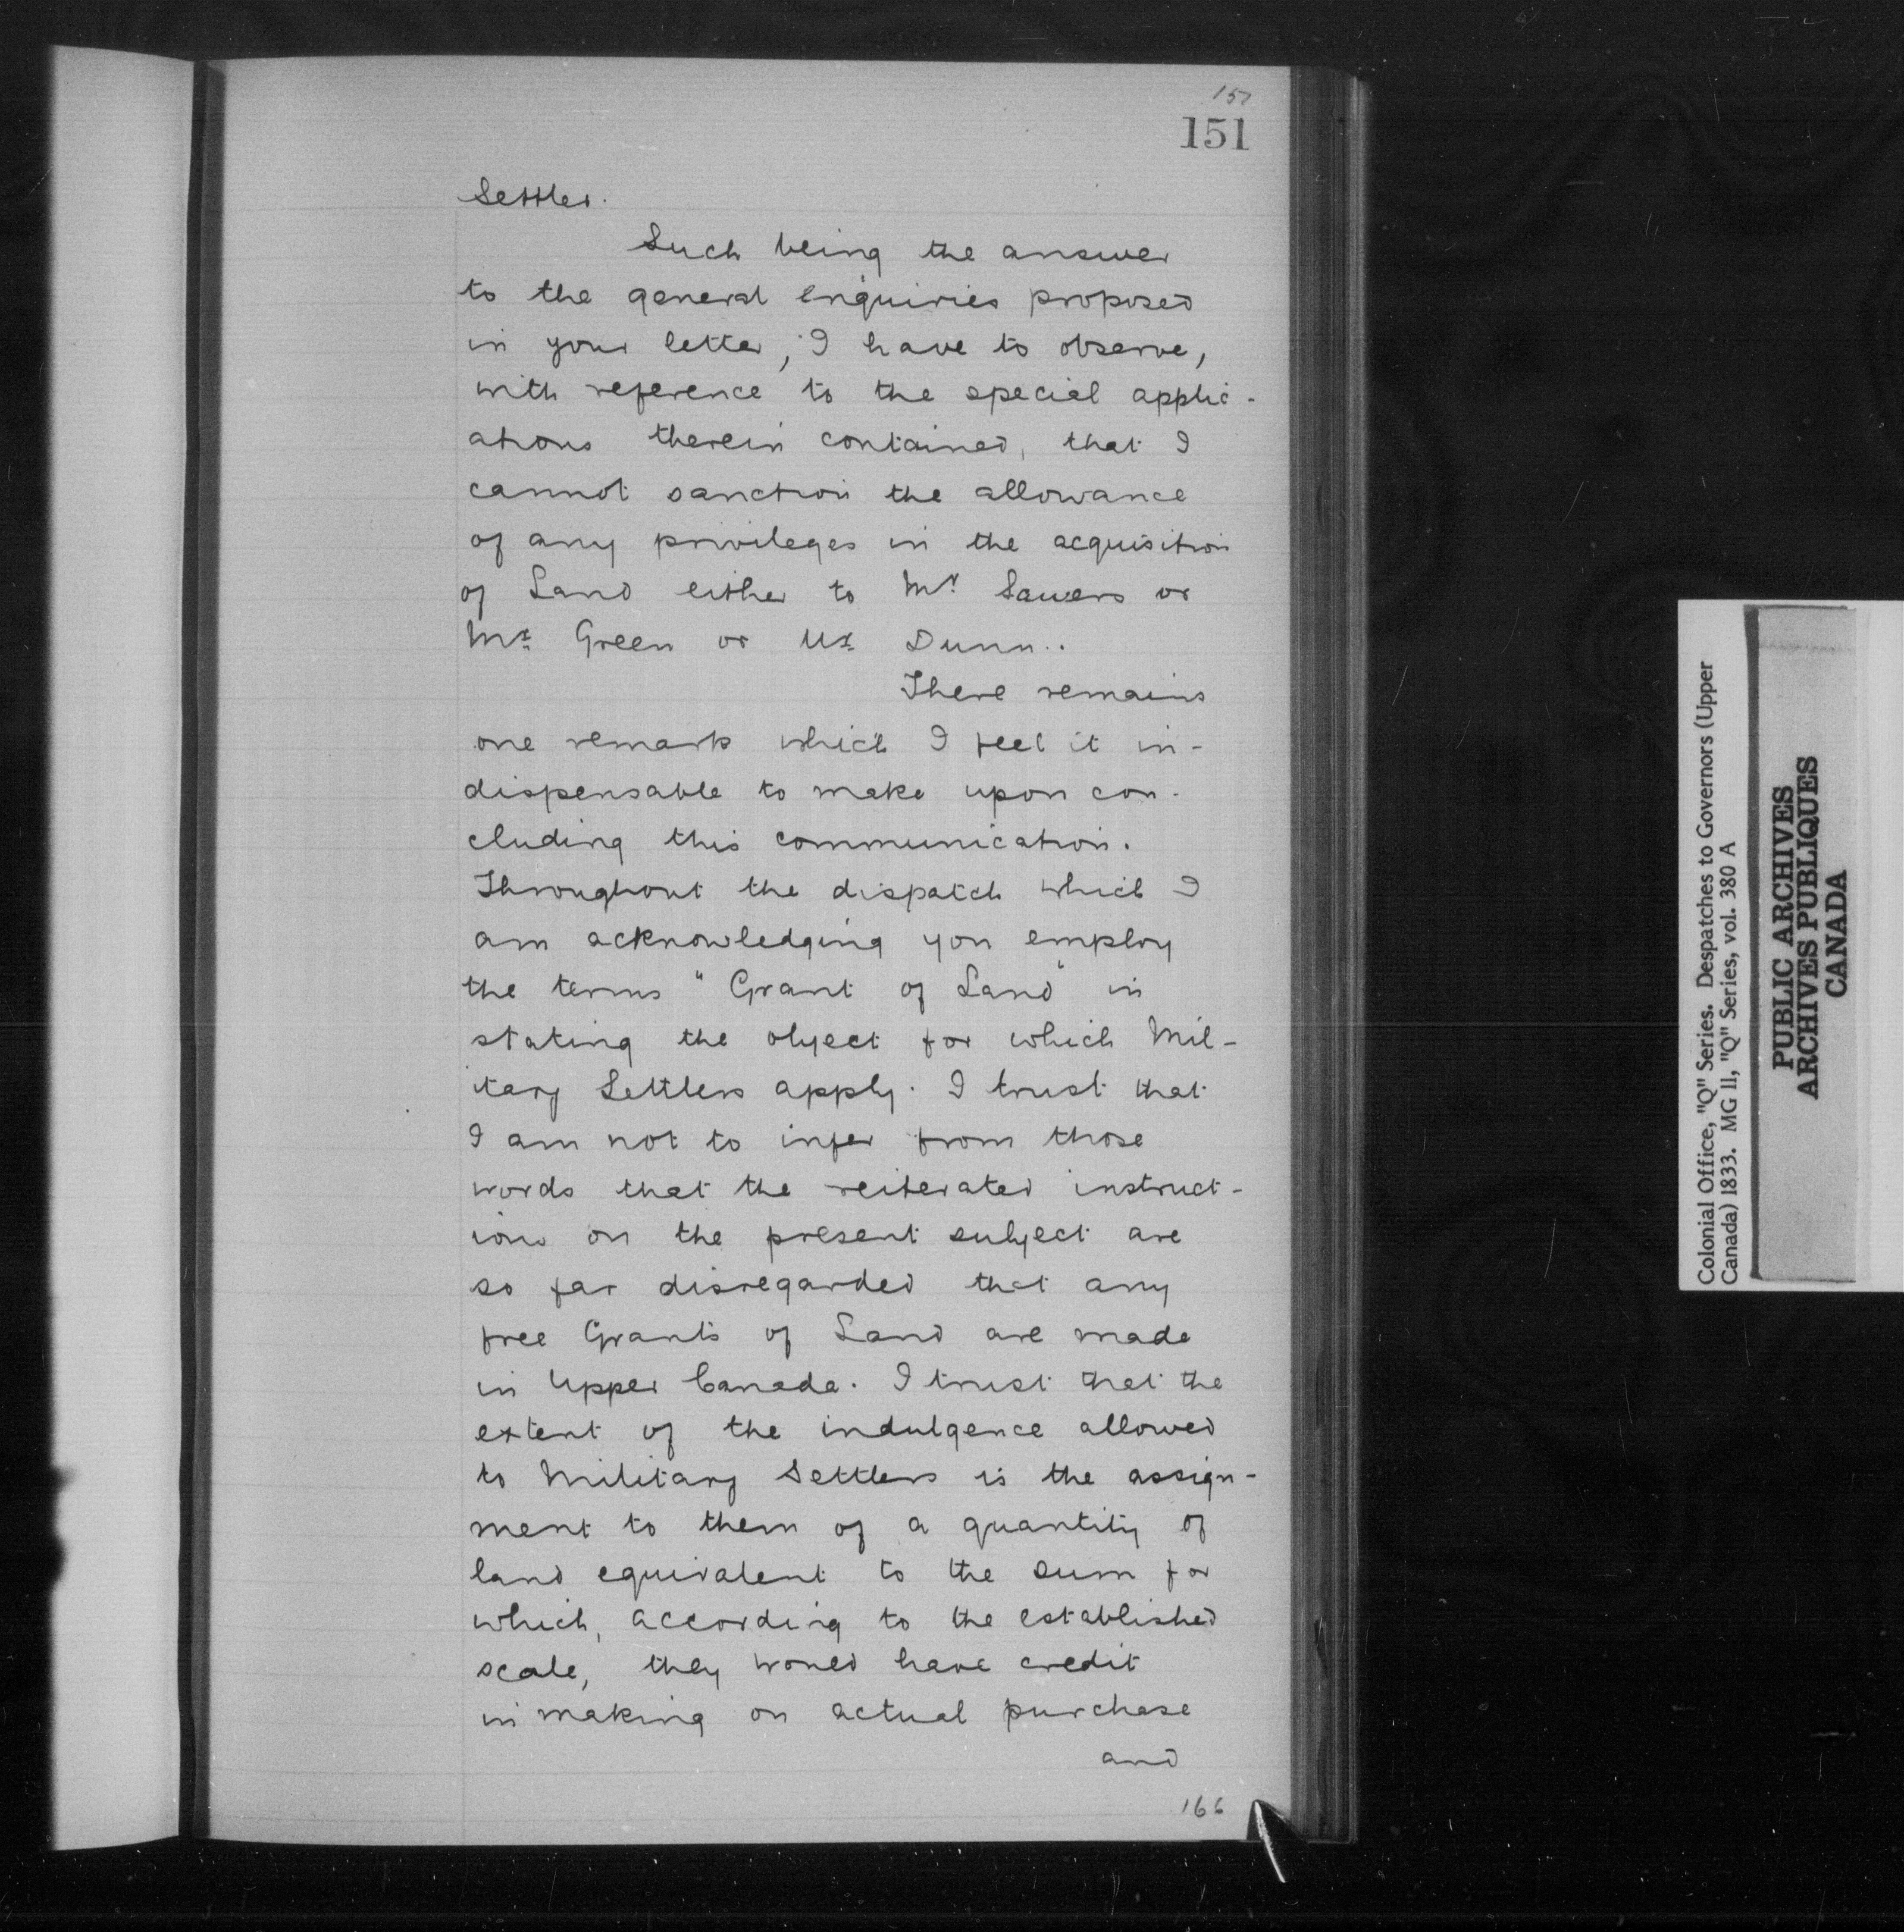 151
151
Settler.
Such being the answer
to the general enquiries proposed
in your letter, I have to observe,
with reference to the special applic-
ations therein contained, that I
cannot sanction the allowance
of any privileges in the acquisition
of Land either to Mr. Sawers or
Mr. Green or Mr. Dunn..
There remains
one remark which I feel it in-
dispensable to make upon con-
cluding this communication.
Throughout the dispatch which I
am acknowledging you employ
the terms "Grant of Land" in
stating the object for which Mil-
itary Settlers apply. I trust that
I am not to infer from those
words that the reiterated instruct-
ions on the present subject are
so far disregarded that any
free Grants of Land are made
in Upper Canada. I trust that the
extent of the indulgence allowed
to Military Settlers is the assign-
ment to them of a quantity of
land equivalent to the sum for
which, according to the established
scale, they would have credit
in making on actual purchase
and
166
Colonial Office, "Q" Series. Despatches to Governors (Upper
Canada) 1833. MG 11, "Q" Series, vol. 380 A
PUBLIC ARCHIVES
ARCHIVES PUBLIQUES
CANADA